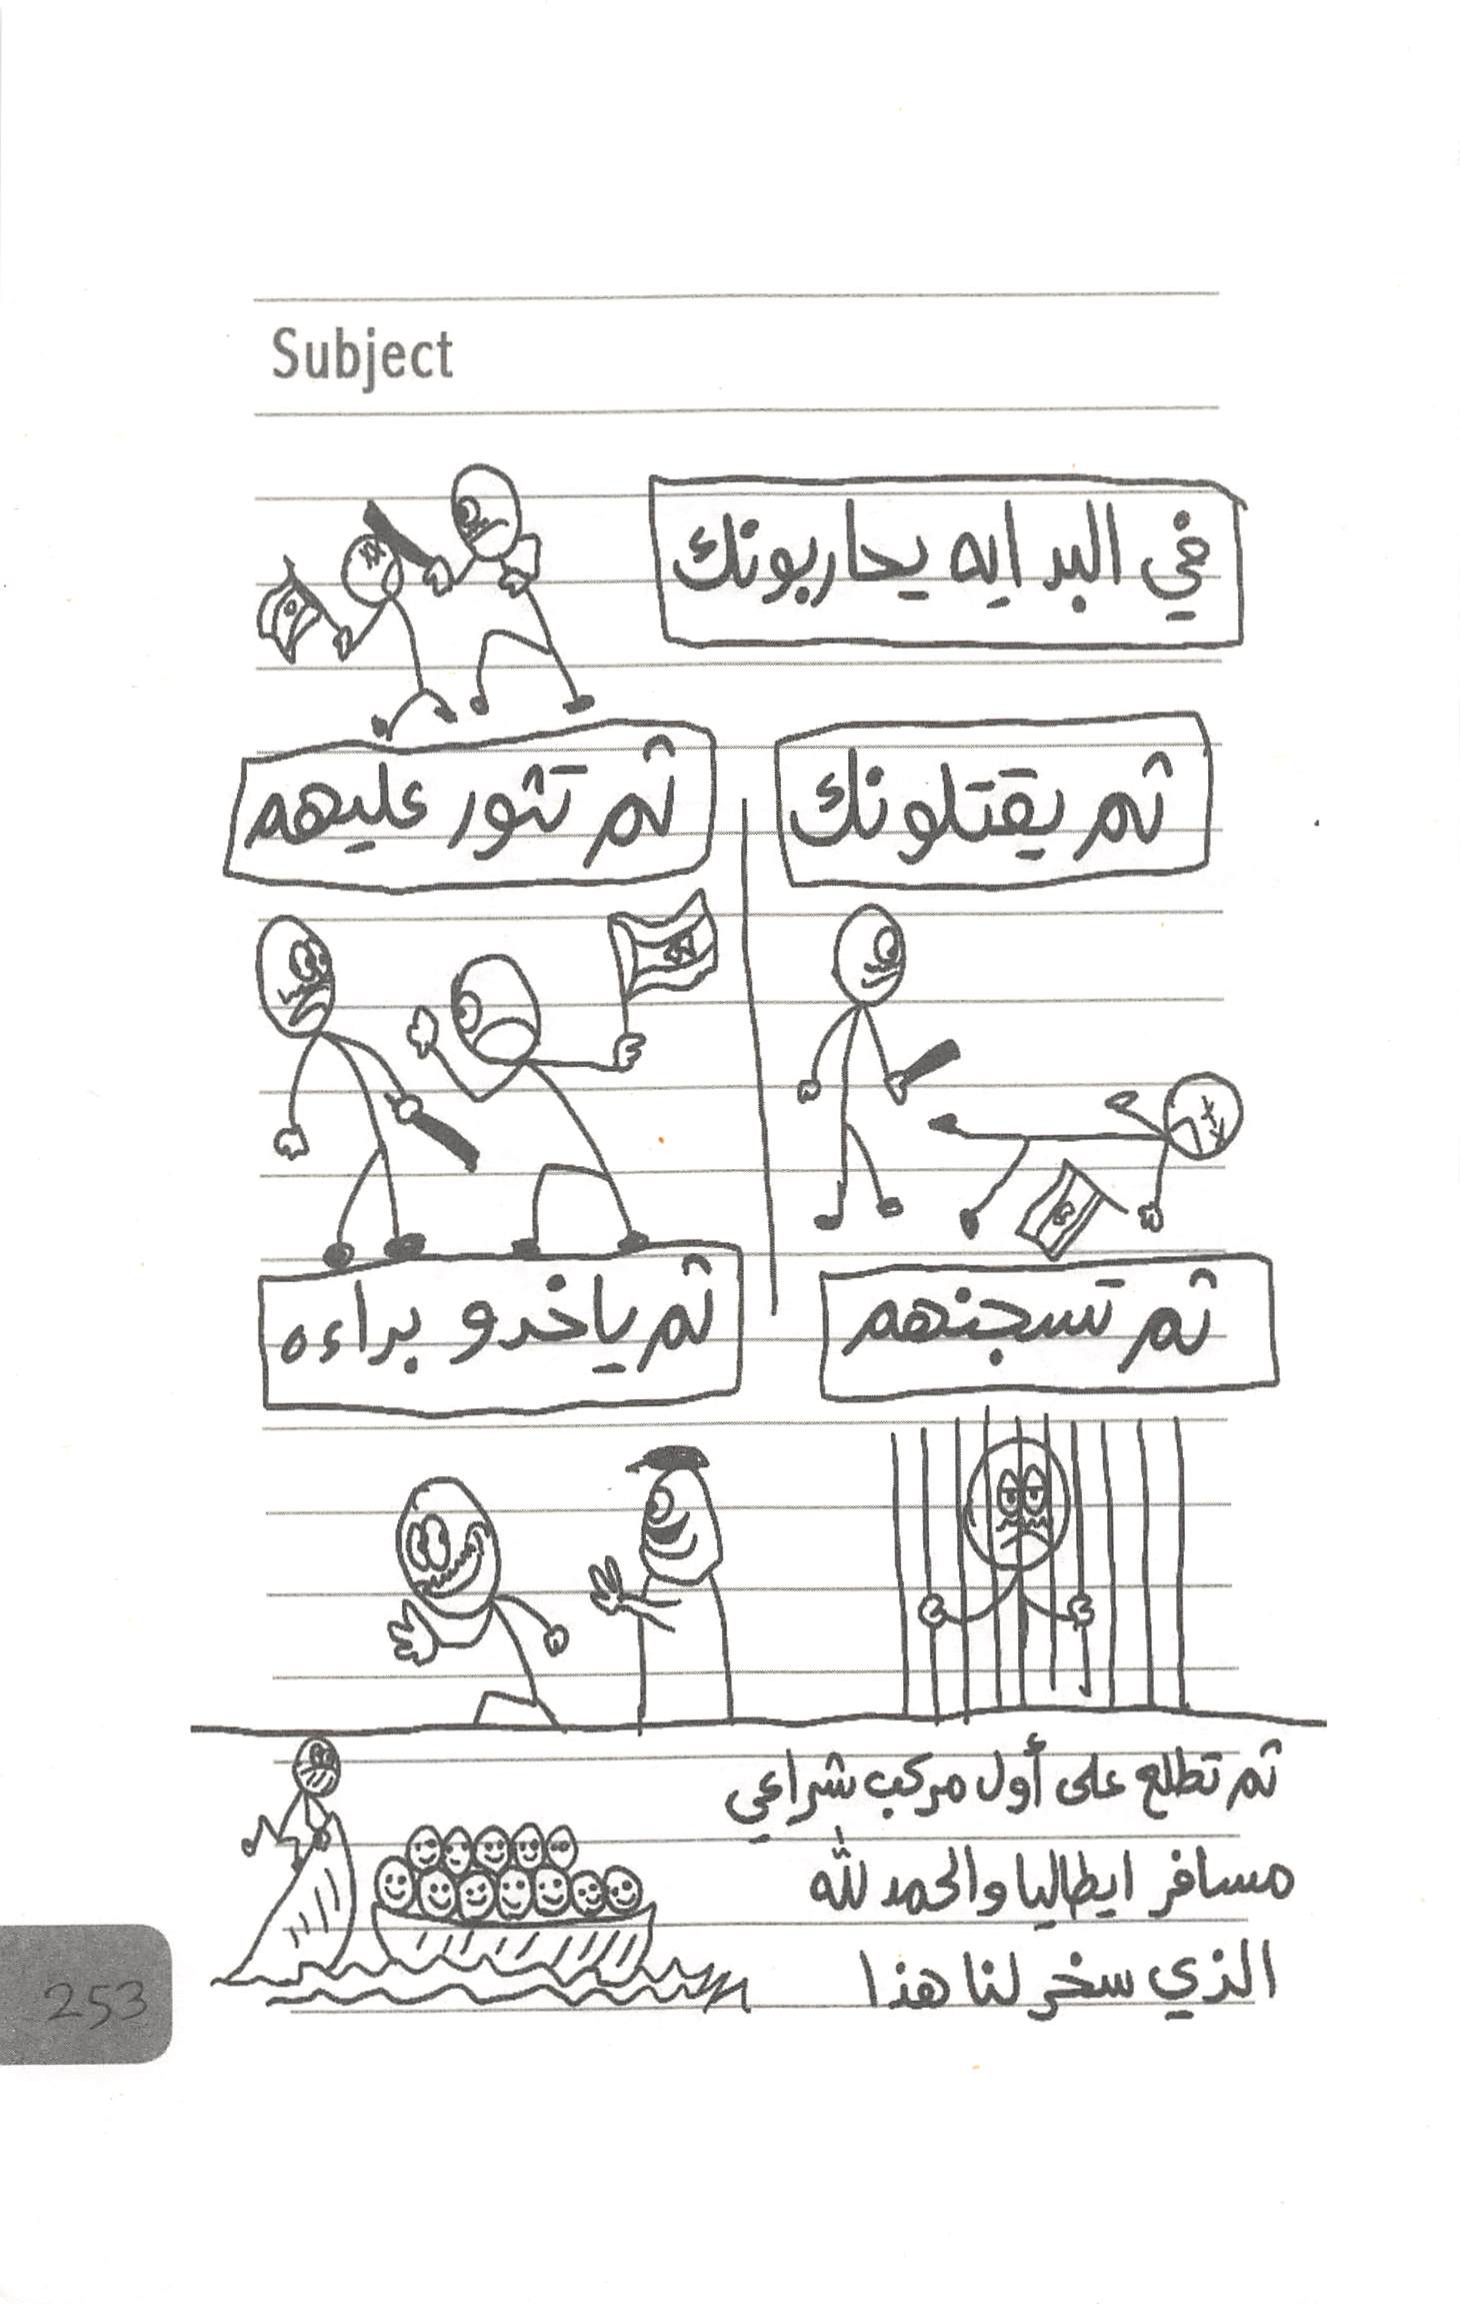 Subject
في البدايه يحاربونك
ثم يقتلونك
ثم تثور عليهم
ثم تسجنهم
ثم ياخدو براءه
ثم تطلع على أول مركب شراعي
مسافر ايطاليا والحمد لله
الذي سخر لنا هذا
253